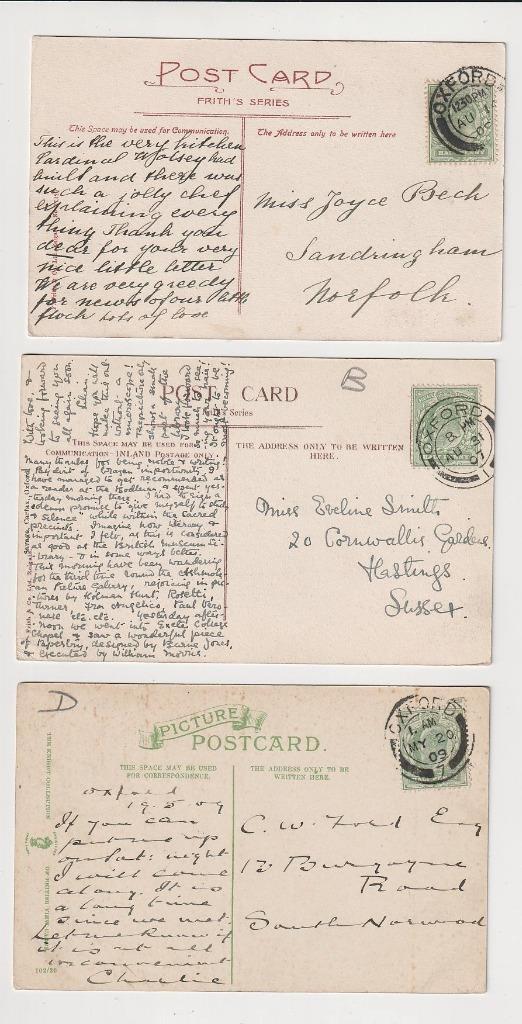 POST CARD
FRITH'S SERIES
This Space may be used for Communication.
The Address only to be written here
OXFORD
12.30 PM
AU 1
This is the very kitchen
Cardinal Wolsey had
built and there was
such a jolly chef
explaining every
thing Thank you
dear for your very
nice little letter
We are very greedy
for news of our little
flock lots of love
Miss Joyce Beck
Sandringham
Norfolk.
With love, &
looking forward
to seeing you
all again soon.
Lilian
Hope you will
make this out
without a
microscope!
POST CARD
Series
THIS SPACE MAY BE USED FROM
COMMUNICATION-INLAND POSTAGE ONLY.
THE ADDRESS ONLY TO BE WRITTEN
HERE.
B
OXFORD
8 PM
AU 21
07
Many thanks for being noble & writing!
By dint of brazen importunity I
have managed to get recommended as
a reader at the Bodleian, & spent yes-
terday morning there. I had to sign a
solemn promise to "give myself to study
& silence" while within the sacred
precincts. Imagine how literary &
important I felt, as this is considered
as good as the British Museum Li-
brary - & in some ways better.
This morning have been wandering
for the third time round the Ashmole-
an Picture Gallery, rejoicing in pic-
tures by Holman Hunt, Rosetti,
Turner, Fra Angelico, Paul Vero
nese etc. etc. Yesterday after-
noon we went into Exeter College
Chapel & saw a wonderful piece
of tapestry, designed by Burne Jones,
& executed by William Morris.
Miss Eveline Smith
20 Cornwallis Gardens
Hastings
Sussex.
D
PICTURE
POSTCARD.
THIS SPACE MAY BE USED
FOR CORRESPONDENCE.
THE ADDRESS ONLY TO BE
WRITTEN HERE.
OXFORD
1. AM
MY 20
09
Oxford
19.5.09
If you can
put me up
on Sat: night
I will come
along. It is
a long time
since we met.
Let me know if
it is at all
inconvenient
Charlie
C. W. Ford Esq
12 Burgoyne
Road
South Norwood